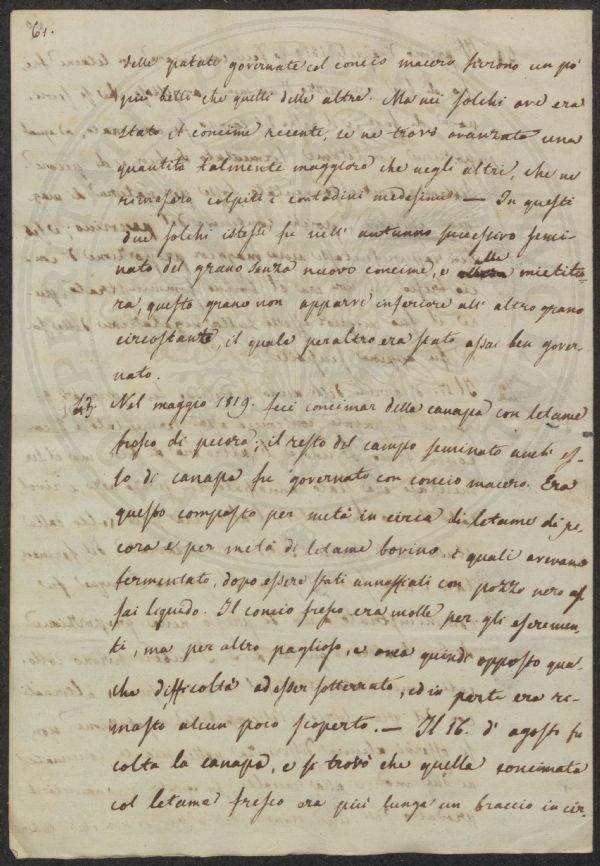 61.
delle patate governate col concio macero ferono un pò
più belli che quelli delle altre. Ma nei solchi ove era
stato il concime recente, se ne trovò avanzata una
quantità talmente maggiore che negli altri, che ne
rimasero colpiti i contadini medesimi — In questi
due solchi istessi fu nell' autunno successivo semi-
nato del grano senza nuovo concime, e alla mietitu-
ra, questo grano non apparve inferiore all' altro grano
circostante, il quale peraltro era stato assai ben gover-
nato.
43. Nel maggio 1819. feci concimar della canapa con letame
fresco di pecora; il resto del campo seminato anch' es-
so di canapa fu governato con concio macero. Era
questo composto per metà in circa di letame di pe-
cora e per metà di letame bovino, i quali avevano
fermentato, dopo essere stati annaffiati con pozzo nero as-
sai liquido. Il concio fresco era molle per gli escremen-
ti, ma per altro paglioso, e avea quindi opposto qua-
che difficoltà ad esser sotterrato, ed in parte era ri-
masto alcun poco scoperto. — Il 16. d' agosto fu
colta la canapa, e si trovò che quella concimata
col letame fresco era più lunga un braccio in cir-